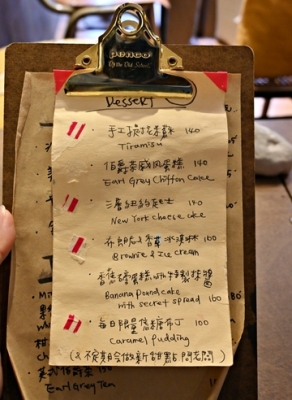 penco
Dessert
手工提拉米蘇 140
Tiramisu
伯爵茶戚風蛋糕 140
Earl Grey Chiffon Cake
三層紐約起士
New York Cheese cake
布朗尼&香草冰淇淋 160
Brownie & Ice cream
香蕉磅蛋糕 with
Banana Pound cake
with secret spread 160
每日限量焦糖布丁 100
Caramel pudding
(&不定期會做新甜點 問老闆)
Earl Grey Tea